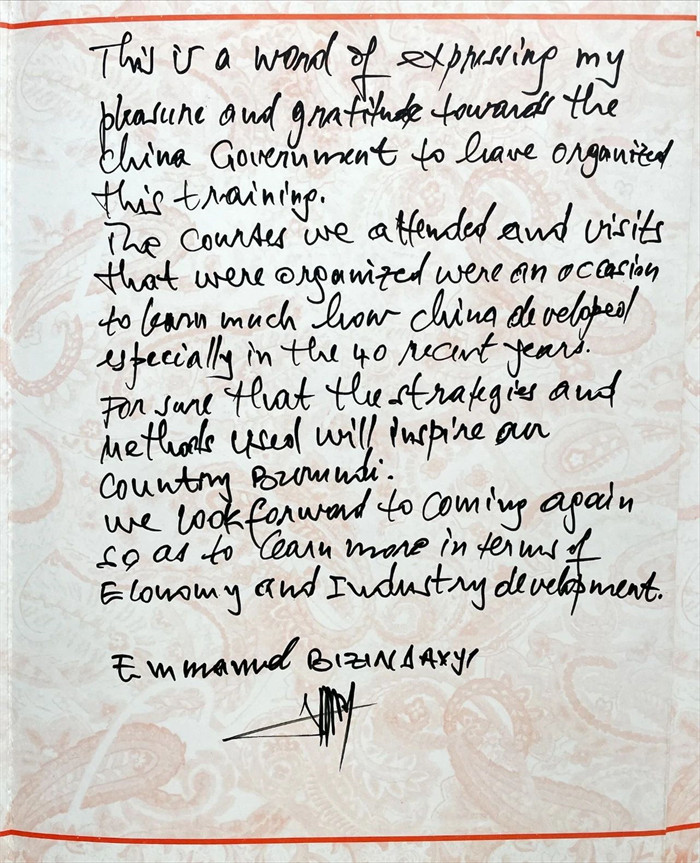 This is a word of expressing my
pleasure and gratitude towards the
china Government to have organized
this training.
The courses we attended and visits
that were organized were an occasion
to learn much how china developed
especially in the 40 recent years.
For sure that the strategies and
methods used will inspire our
country Burundi.
we look forward to coming again
so as to learn more in terms of
Economy and Industry development.
Emmanuel